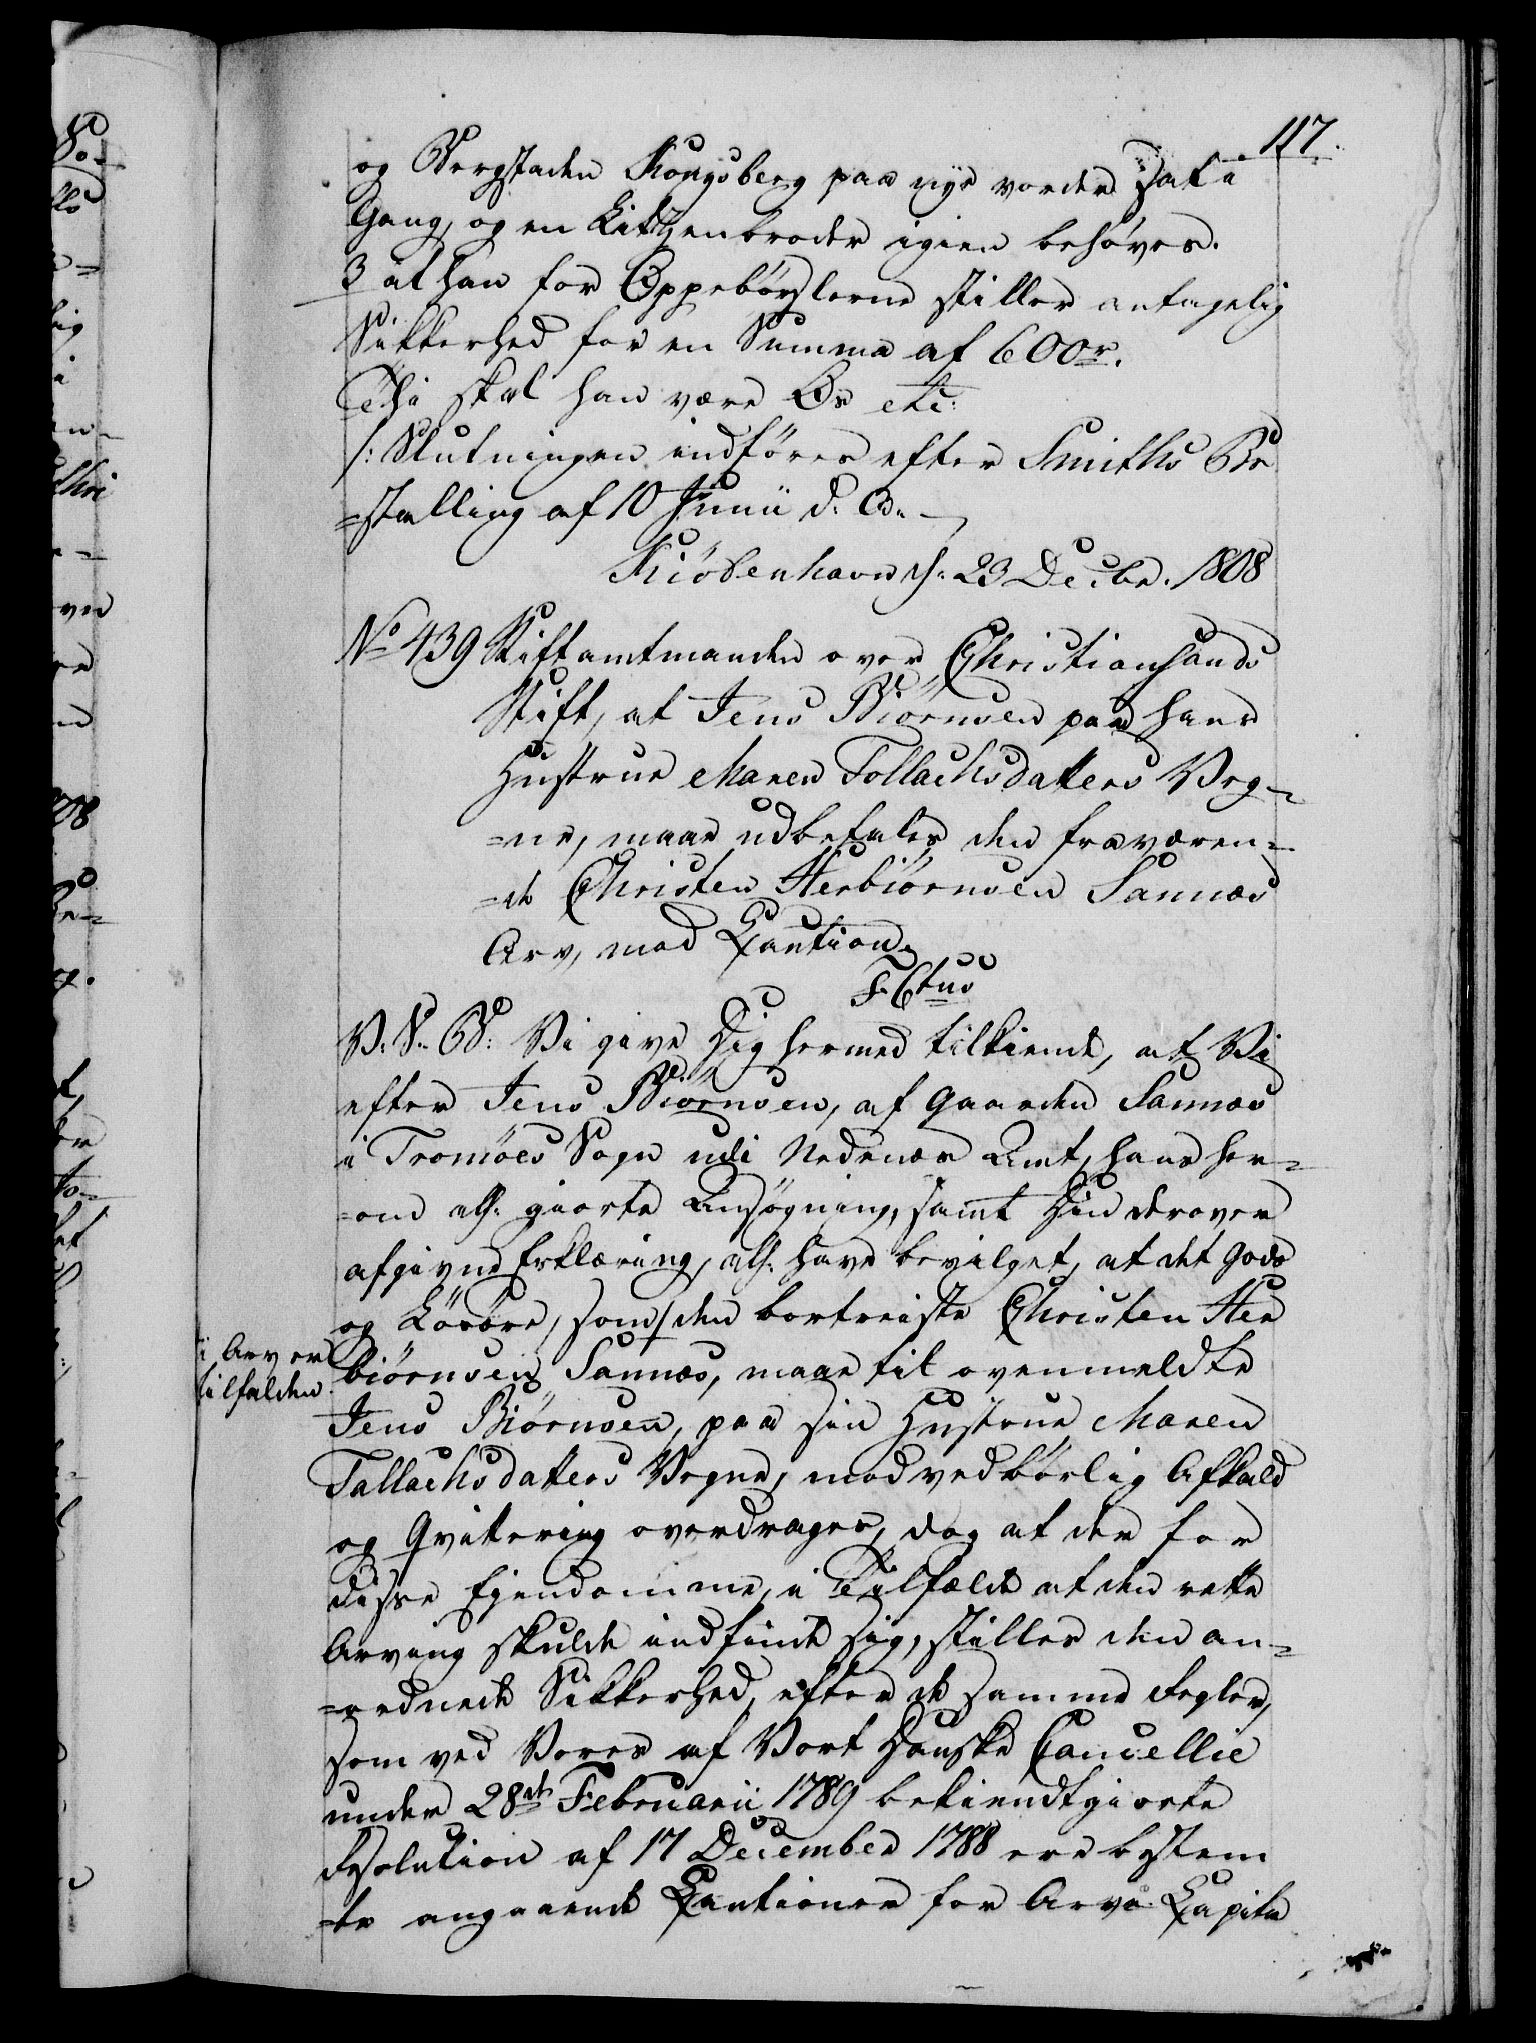 117.
og Bergstaden Kongsberg paa nye vorder sat i
Gang, og en Lidzenbroder igien behøves.
3 at han for Oppebørslerne stiller antagelig
Sikkerhed for en Summa af 600 r.
Thi skal han være Os etc:
/: Slutningen indføres efter Smiths Be
=stalling af 10 Junii d. A. —
Kiøbenhavn d: 23 Decbr. 1808
No 439 Stiftamtmanden over Christiansands
Stift, at Jens Biørnsen paa hans
Hustrue Maren Tollachsdatters Veg=
=ne, maae udbetales den fraværen=
=de Christen Herbiørnsen Sannæs
Arv, mod Caution.
F 6tus
V. S. G: Vi give Dig hermed tilkiende, at Vi
efter Jens Biørnsen, af Gaarden Sannæs
i Tromøes Sogn udi Nedenæs Amt, hans her=
=om all: giorte Ansøgning, samt Din derover
afgivne Erklæring, all: have bevilget, at det Gods
og Løsøre, som / den bortreiste Christen Her
i Arv er
tilfalden
biørnsen Sannæs, maae til ovenmeldte
Jens Biørnsen, paa sin Hustrue Maren
Tallachsdatters Vegne, mod vedbørlig Afkald
og Qvitering overdrages, dog at der for
disse Ejendomme, i Tilfælde at den rette
Arving skulde indfinde sig, stilles den an=
=ordnede Sikkerhed, efter de samme Regler,
som ved Vores af Vort Danske Cancellie
under 28de Februarii 1789 bekiendtgiorte
Resolution af 17 December 1788 ere bestem
=te angaaende Cautioner for Arve Capita